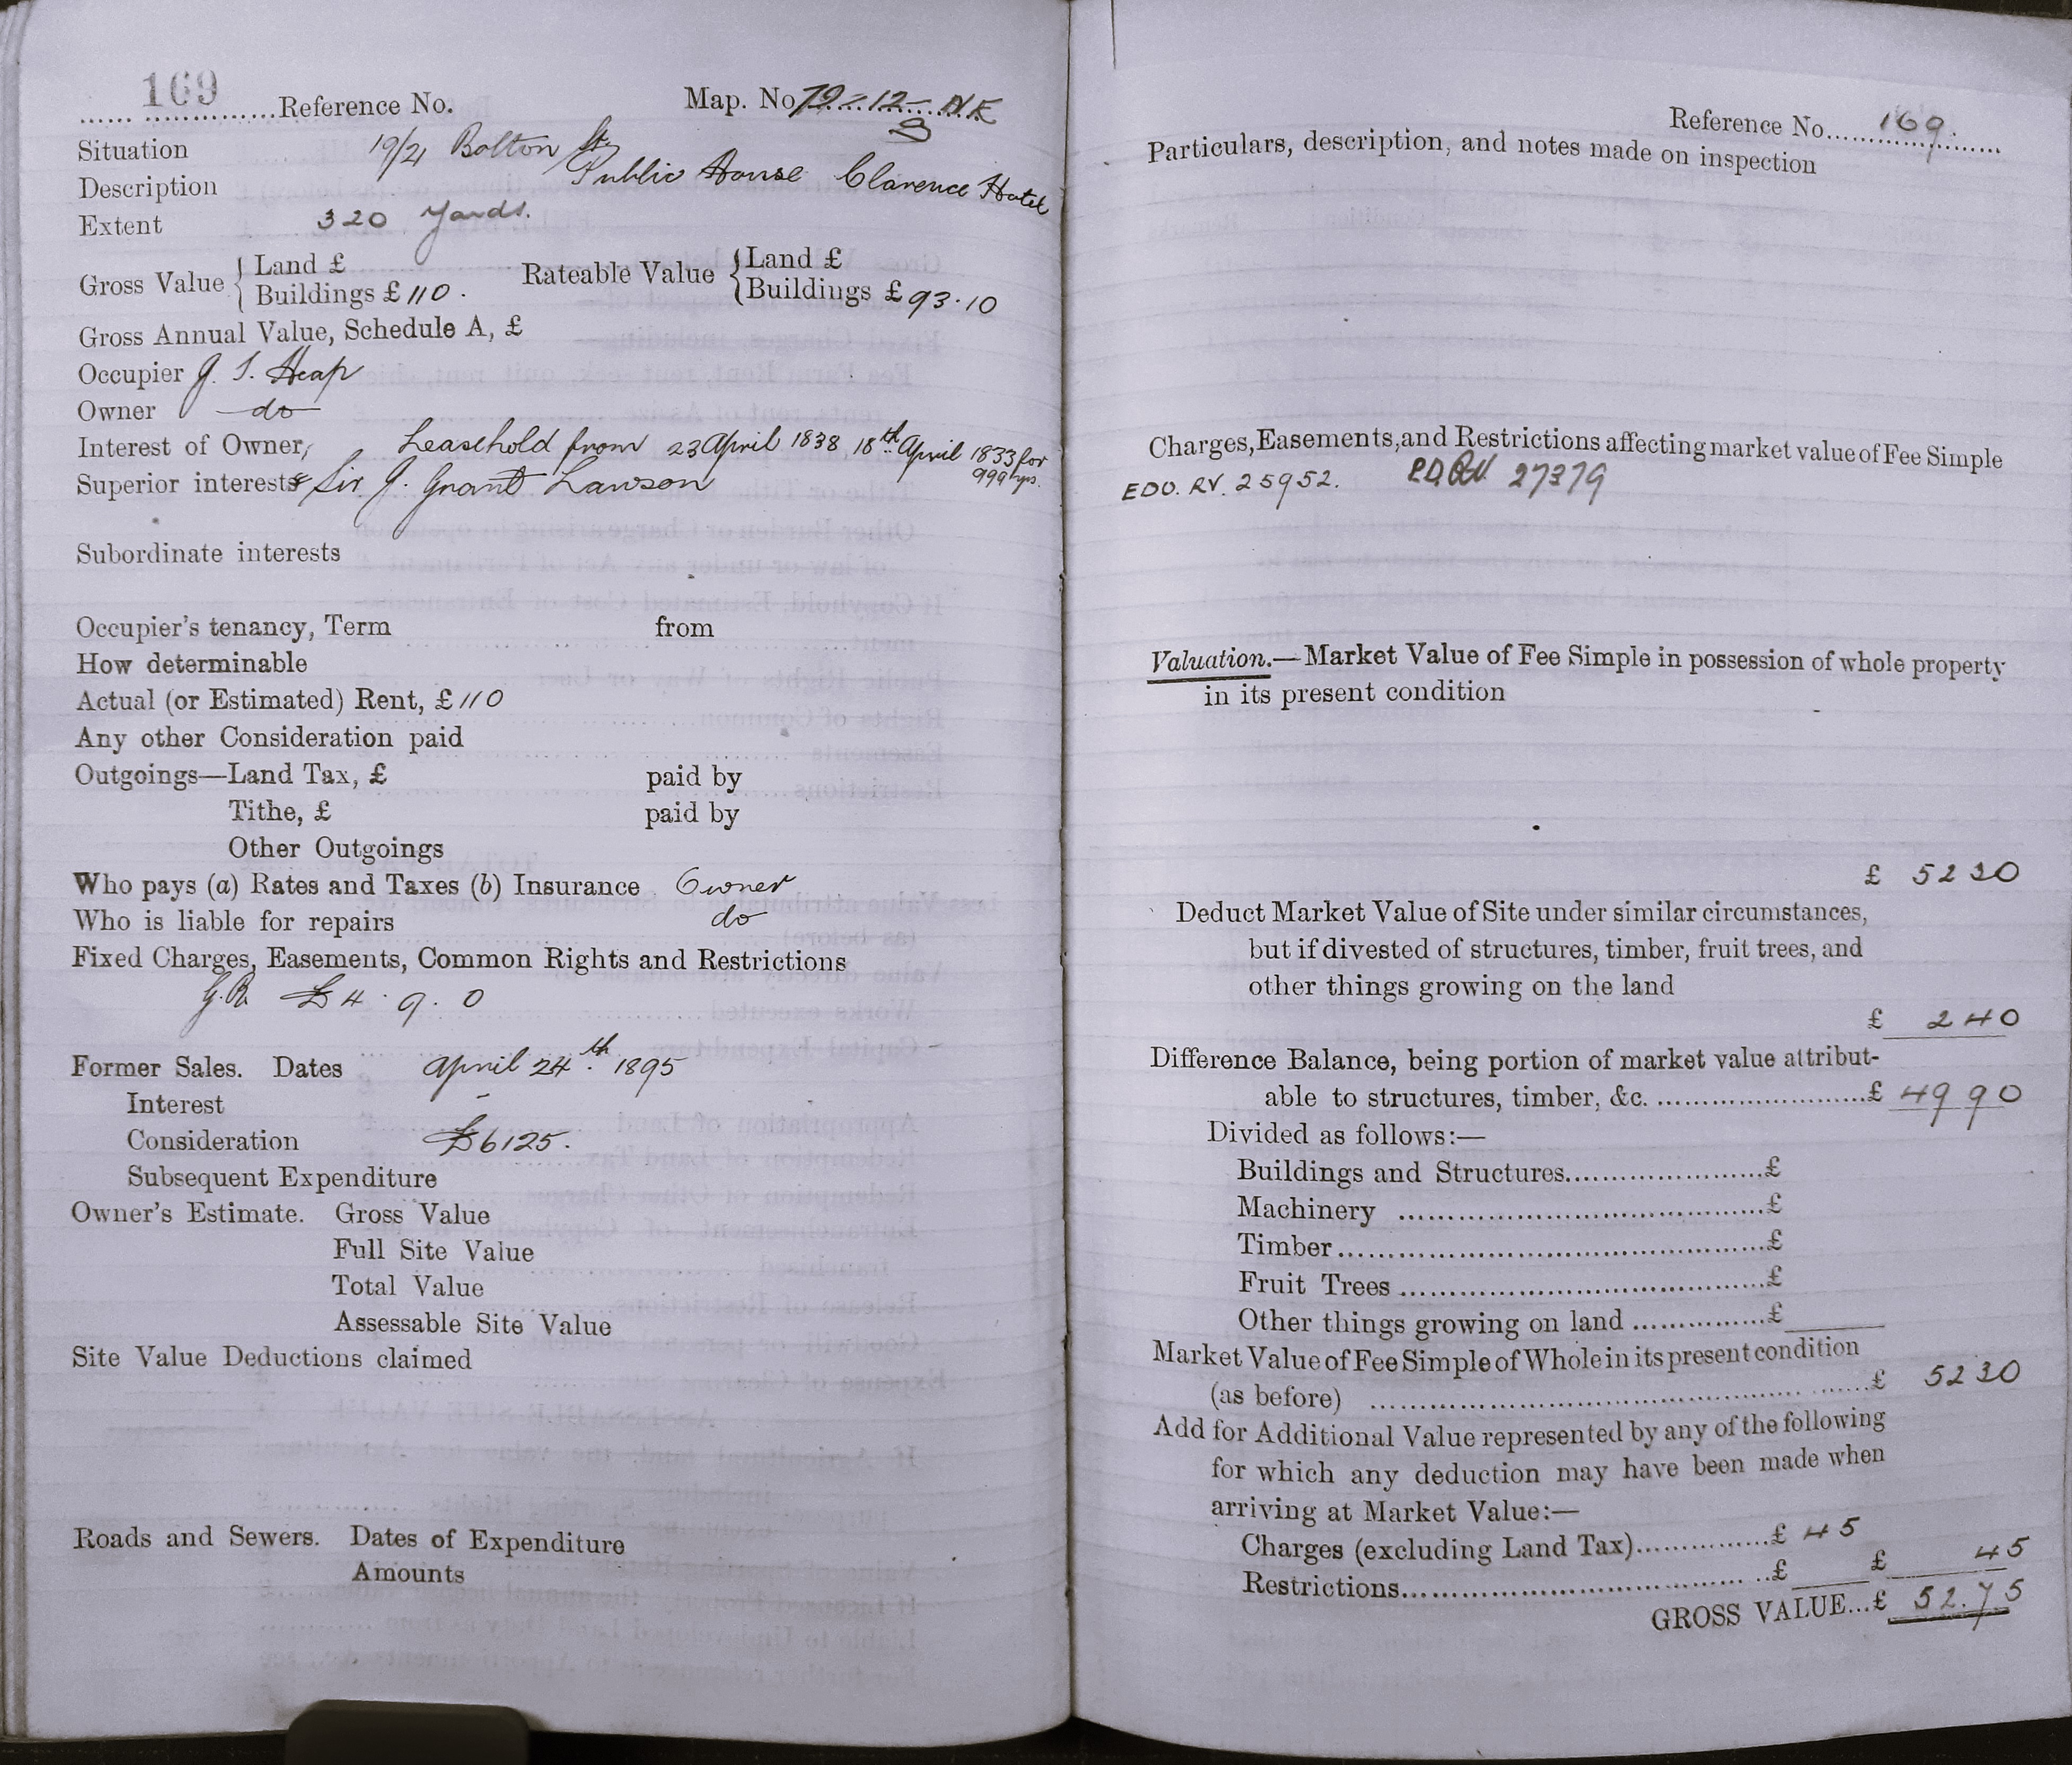 169 Reference No. Map. No 79-12-NE
8
Situation 19/21 Bolton St.
Description Public House Clarence Hotel
Extent 320 Yards.
Gross Value { Land £ Rateable Value { Land £
Buildings £ 110. Buildings £ 93.10
Gross Annual Value, Schedule A, £
Occupier J. S. Heap
Owner do
Interest of Owner, Leasehold from 23 April 1838, 18th April 1833 for
999 yrs.
Superior interests Sir J. Grant Lawson
Subordinate interests
Occupier's tenancy, Term from
How determinable
Actual (or Estimated) Rent, £ 110
Any other Consideration paid
Outgoings—Land Tax, £ paid by
Tithe, £ paid by
Other Outgoings
Who pays (a) Rates and Taxes (b) Insurance Owner
Who is liable for repairs do
Fixed Charges, Easements, Common Rights and Restrictions
G.R. £4.9.0
Former Sales. Dates April 24th. 1895
Interest -
Consideration £6125.
Subsequent Expenditure
Owner's Estimate. Gross Value
Full Site Value
Total Value
Assessable Site Value
Site Value Deductions claimed
Roads and Sewers. Dates of Expenditure
Amounts
Reference No. 169.
Particulars, description, and notes made on inspection
Charges, Easements, and Restrictions affecting market value of Fee Simple
EDO. RV. 25952. 27379
Valuation.—Market Value of Fee Simple in possession of whole property
in its present condition
£ 5230
Deduct Market Value of Site under similar circumstances,
but if divested of structures, timber, fruit trees, and
other things growing on the land
£ 240
Difference Balance, being portion of market value attribut-
able to structures, timber, &c. £ 4990
Divided as follows:—
Buildings and Structures £
Machinery £
Timber £
Fruit Trees £
Other things growing on land £
Market Value of Fee Simple of Whole in its present condition
(as before) £ 5230
Add for Additional Value represented by any of the following
for which any deduction may have been made when
arriving at Market Value:—
Charges (excluding Land Tax) £ 45
Restrictions £ £ 45
GROSS VALUE...£ 52.75